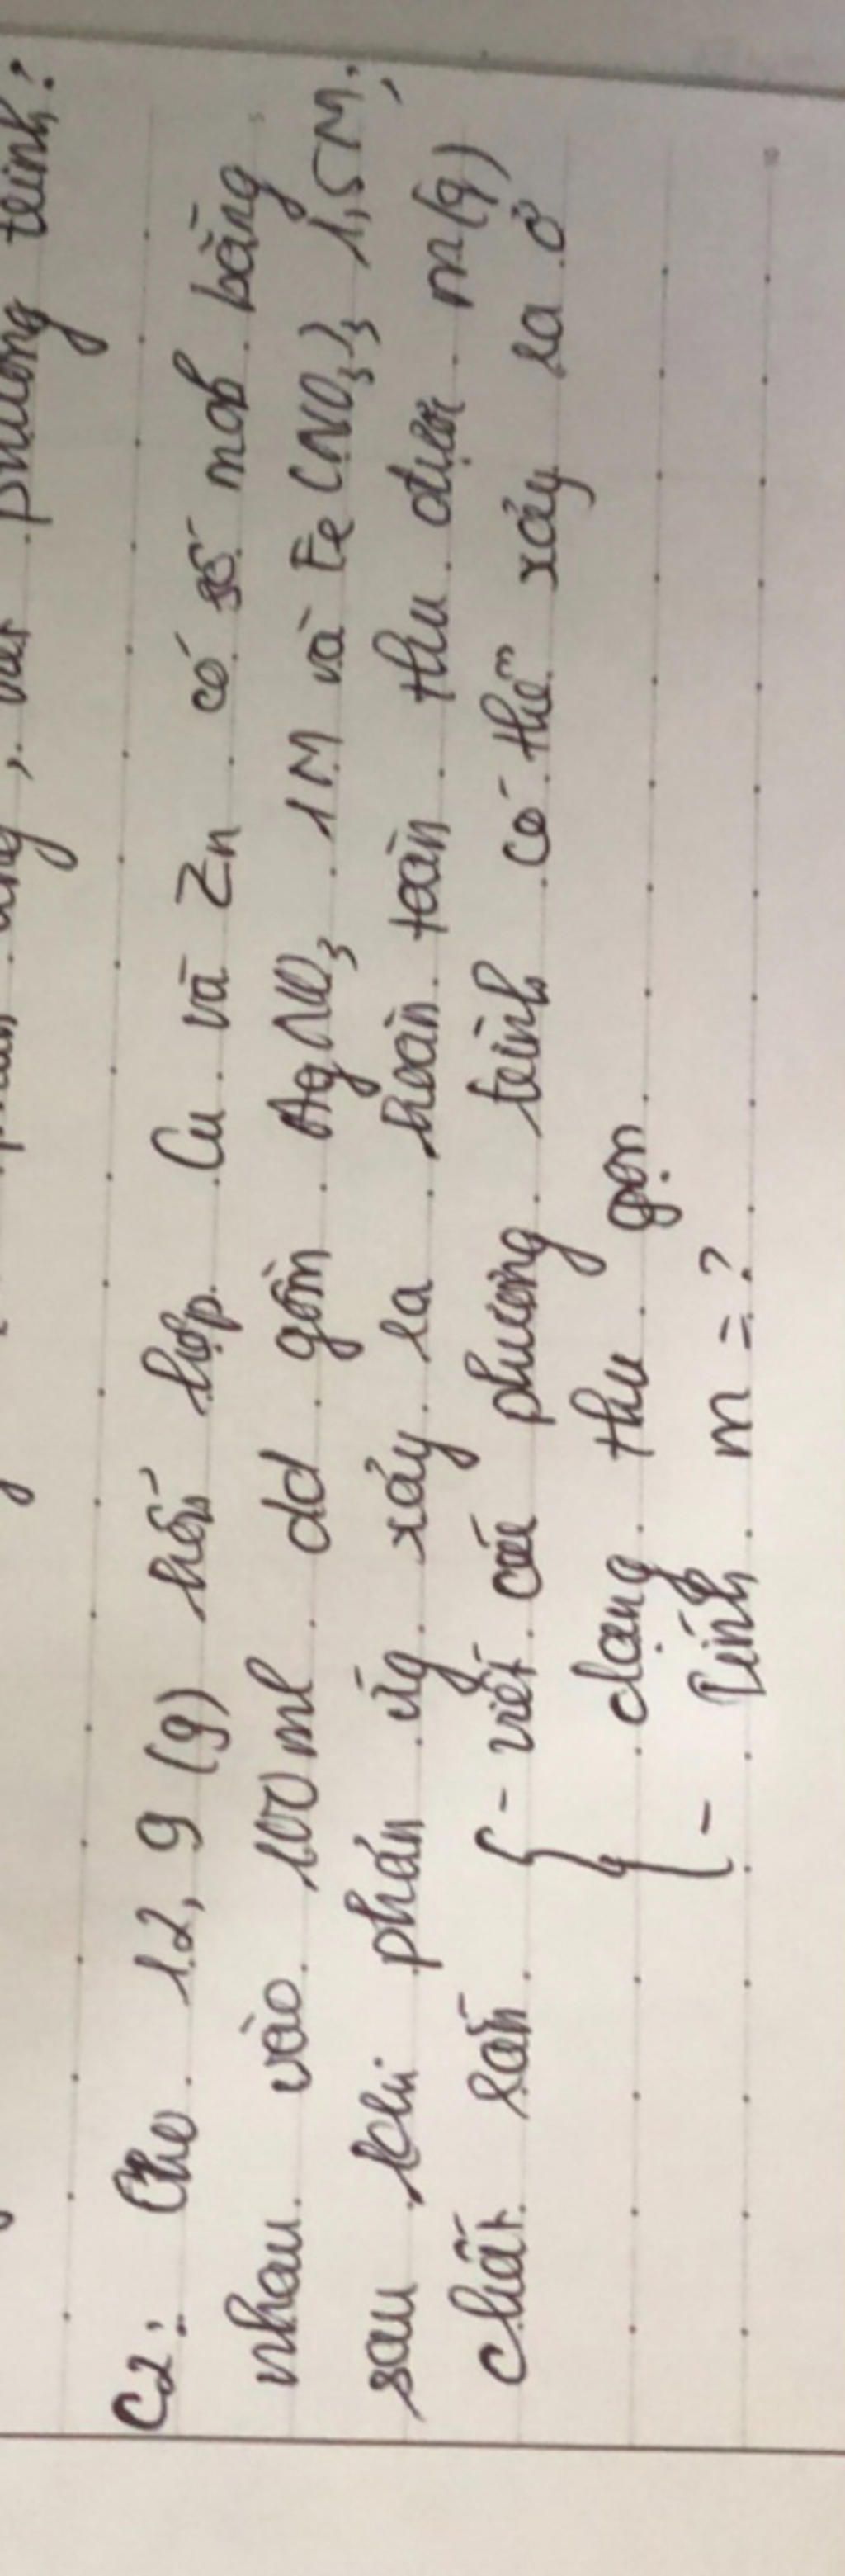 phương trình?
C2: Cho 12,9 (g) hỗn hợp Cu và Zn có số mol bằng
nhau vào 100 ml dd gồm AgNO3 1M và Fe(NO3)3 1,5M;
sau khi phản ứg xảy ra hoàn toàn thu được m(g)
chất rắn. {- viết các phương trình có thể xảy ra ở
dạng thu gọn
- Tính m = ?